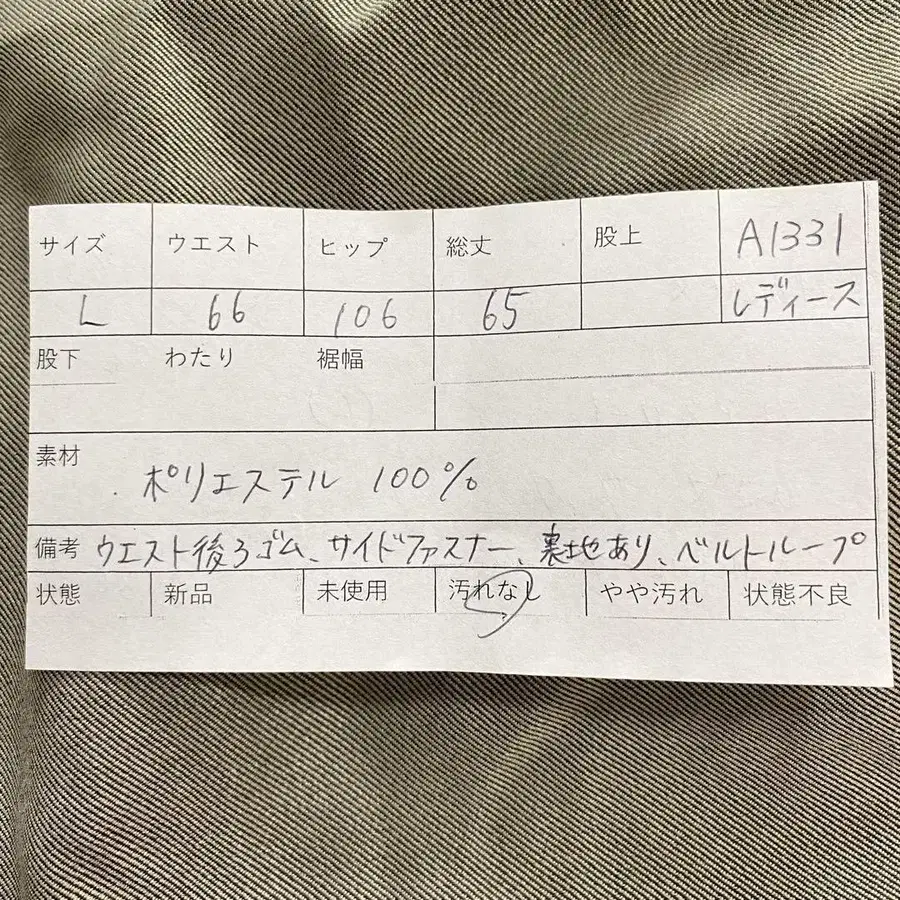 サイズ ウエスト ヒップ 総丈 股上 A1331
L 66 106 65 レディース
股下 わたり 裾幅
素材
ポリエステル 100%
備考 ウエスト後ろゴム、サイドファスナー、裏地あり、ベルトループ
状態 新品 未使用 汚れなし やや汚れ 状態不良